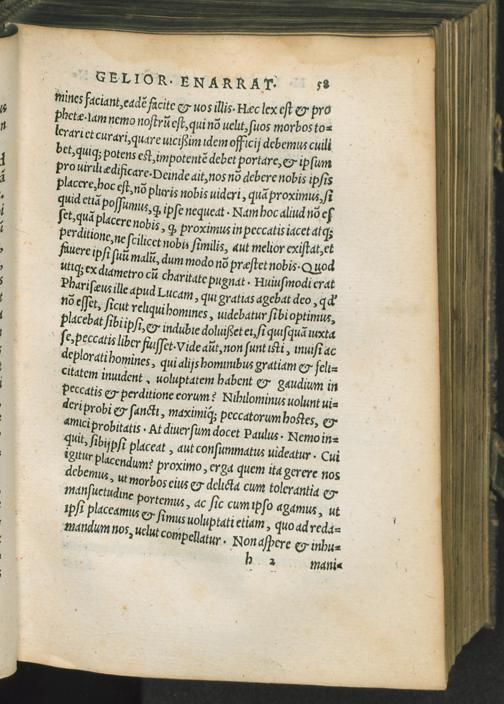 GELIOR· ENARRAT· 58
mines faciant, eadē facite & uos illis· Hæc lex est & pro
phetæ· Iam nemo nostrū est, qui nō velit, suos morbos to=
lerari et curari, quare uicissim idem officij debemus cuili
bet, quiq; potens est, impotentē debet portare, & ipsum
pro virili ædificare· Deinde ait, nos nō debere nobis ipsis
placere, hoc est, nō pluris nobis uideri, quā proximus, si
quid etiā possumus, q; ipse nequeat· Nam hoc aliud nō es
set, quā placere nobis, q; proximus in peccatis iacet atq;
perditione, ne scilicet nobis similis, aut melior existat, et
fauere ipsi suū malū, dum modo nō præstet nobis· Quod
utiq; ex diametro cū charitate pugnat· Huiusmodi erat
Pharisæus ille apud Lucam, qui gratias agebat deo, q d'
nō esset, sicut reliqui homines, uidebatur sibi optimus,
placebat sibi ipsi, & indubie doluißet ei, si quisquā iuxta
se, peccatis liber fuisset· Vide aūt, non sunt isti, inuisi ac
deplorati homines, qui alijs hominibus gratiam & feli=
citatem inuident, voluptatem habent & gaudium in
peccatis & perditione eorum? Nihilominus volunt ui=
deri probi & sancti, maximiq; peccatorum hostes, &
amici probitatis· At diuersum docet Paulus· Nemo in=
quit, sibijpsi placeat, aut consummatus uideatur· Cui
igitur placendum? proximo, erga quem ita gerere nos
debemus, ut morbos eius & delicta cum tolerantia &
mansuetudine portemus, ac sic cum ipso agamus, ut
ipsi placeamus & simus voluptati etiam, quo ad reda=
mandum nos, uelut compellatur· Non aspere & inhu=
h 2 mani=